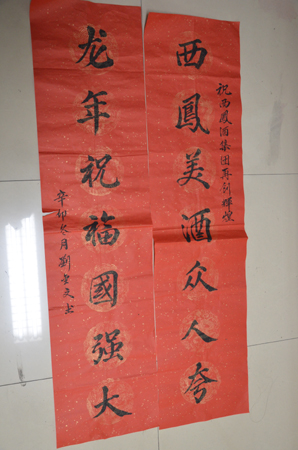 祝西鳳酒集团再创輝煌
西鳳美酒众人夸
龙年祝福國强大
辛卯冬月劉